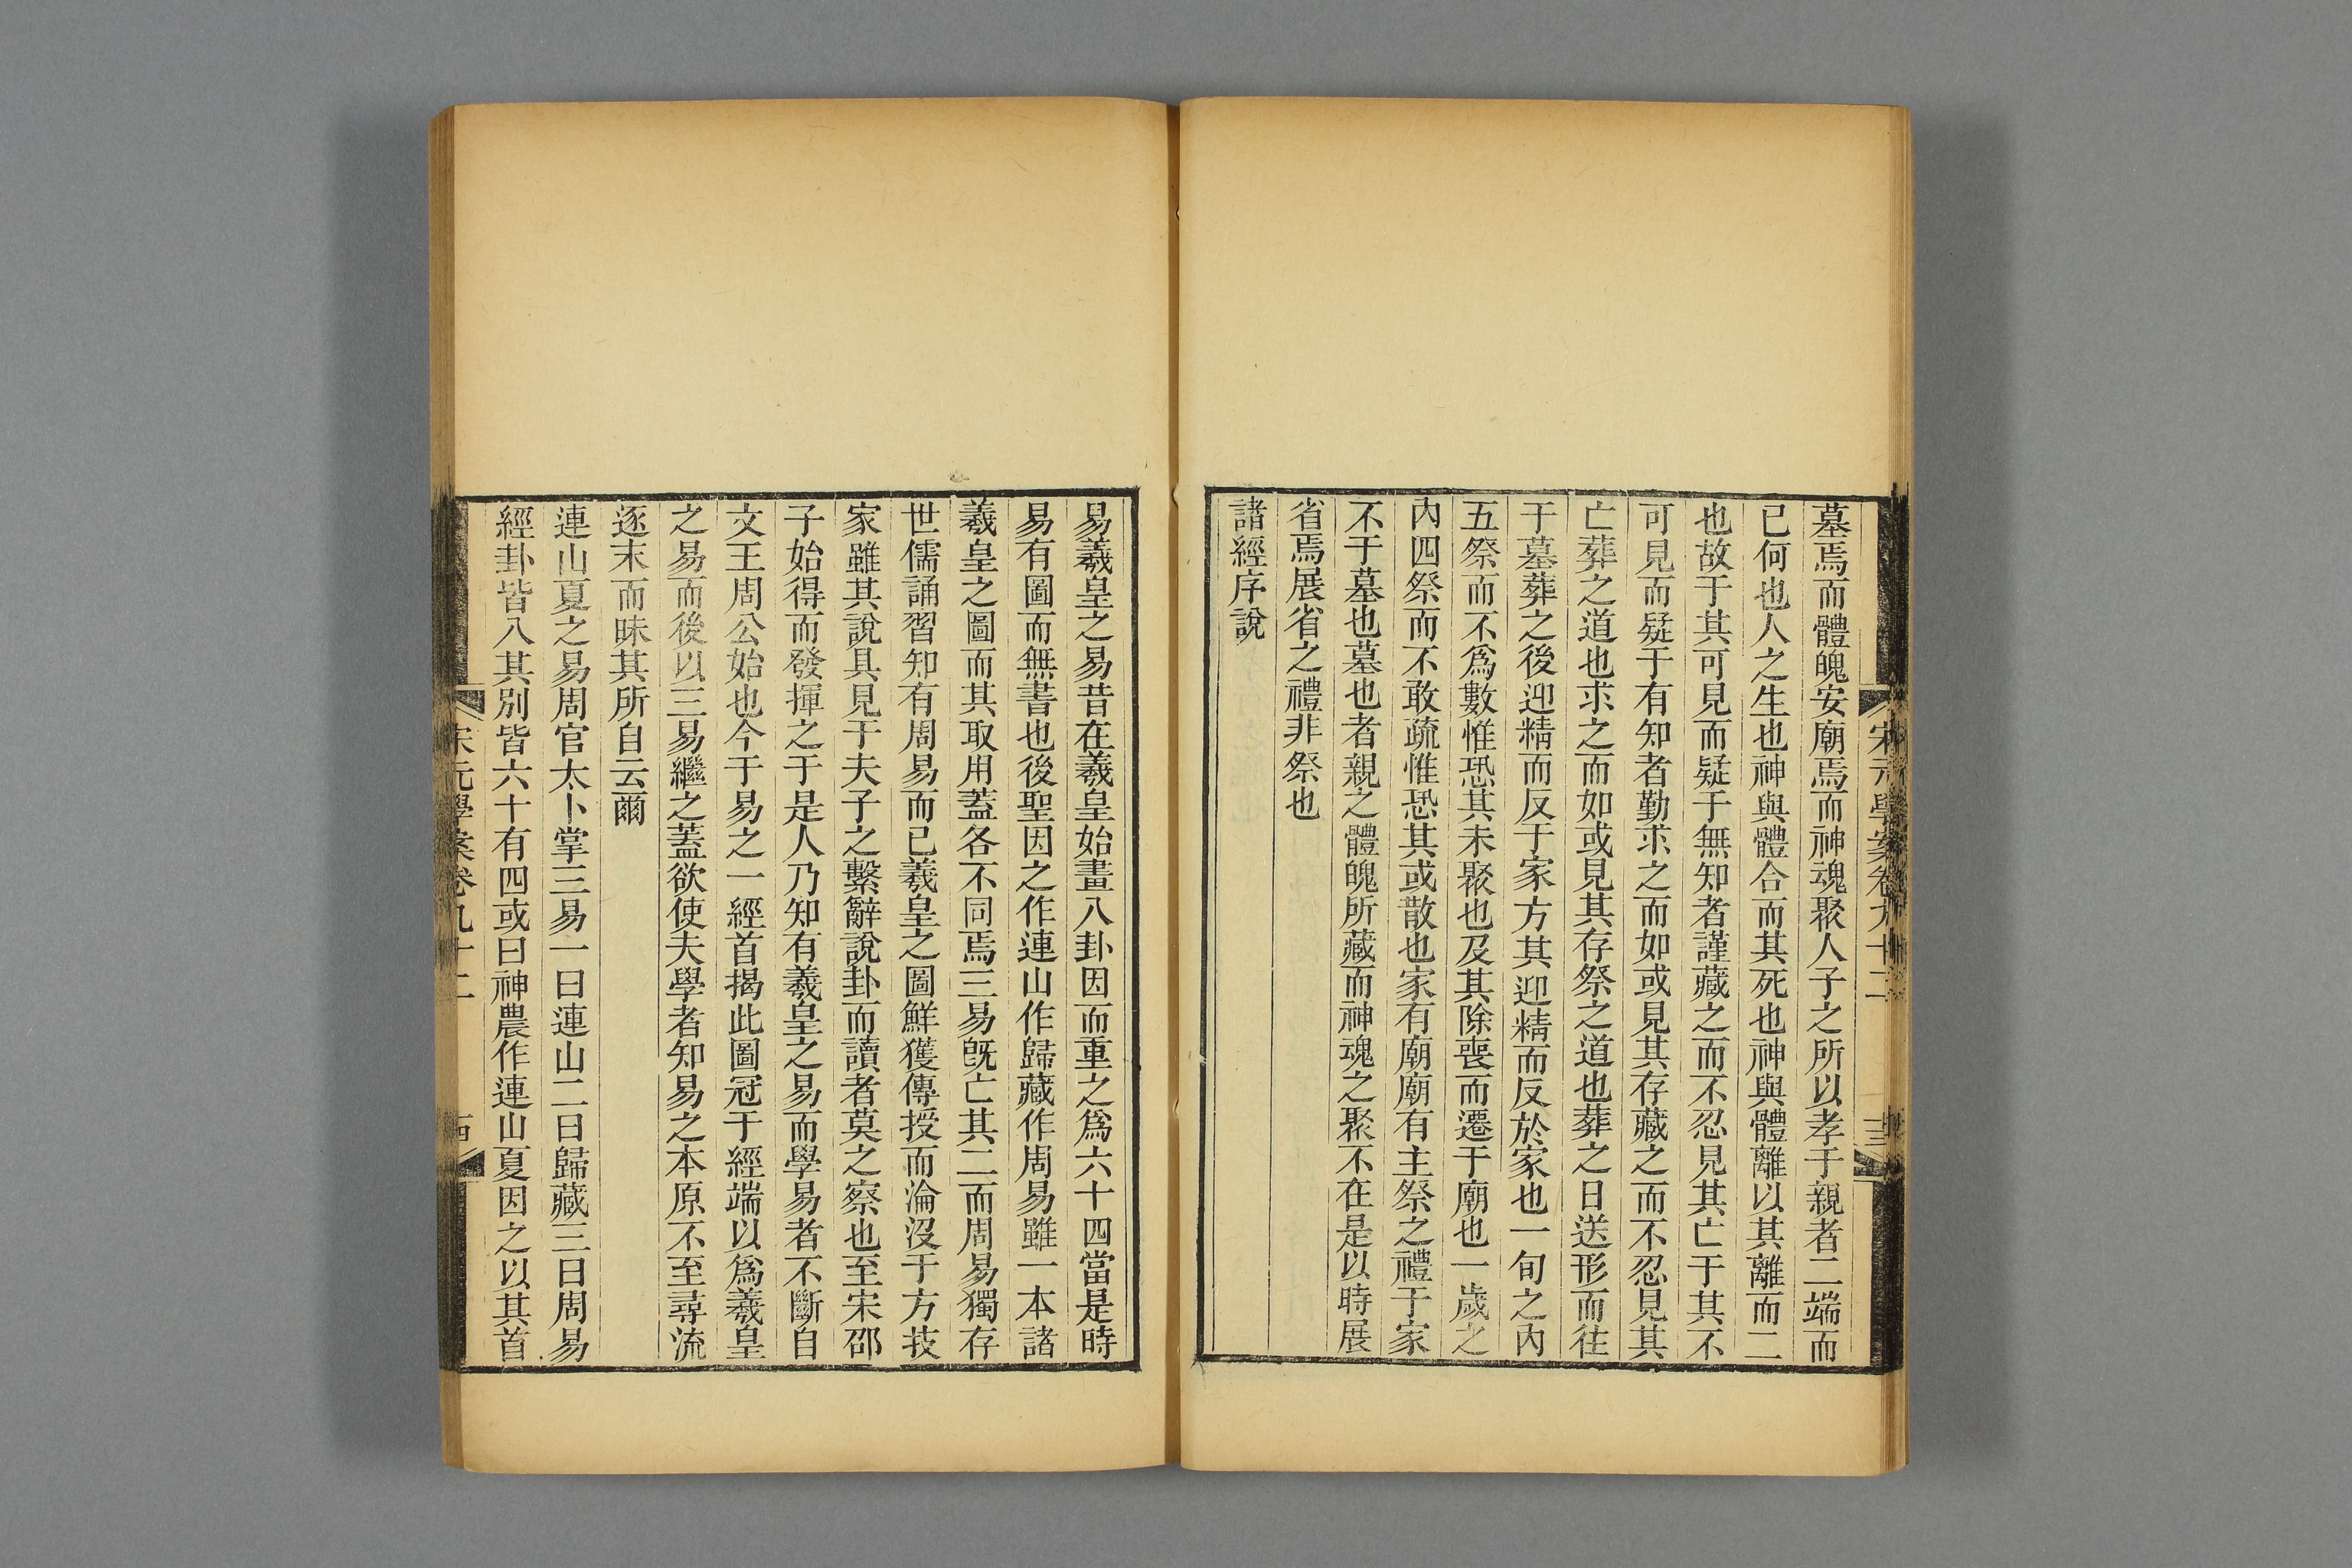 宋元學案卷九十二
十三
墓焉而體魄安廟焉而神魂聚人子之所以孝于親者二端而
已何也人之生也神與體合而其死也神與體離以其離而二
也故于其可見而疑于無知者謹藏之而不忍見其亡于其不
可見而疑于有知者勤求之而如或見其存藏之而不忍見其
亡葬之道也求之而如或見其存祭之道也葬之日送形而往
于墓葬之後迎精而反于家方其迎精而反於家也一旬之內
五祭而不爲數惟恐其未聚也及其除喪而遷于廟也一歲之
內四祭而不敢疏惟恐其或散也家有廟廟有主祭之禮于家
不于墓也墓也者親之體魄所藏而神魂之聚不在是以時展
省焉展省之禮非祭也
諸經序說
易羲皇之易昔在羲皇始畫八卦因而重之爲六十四當是時
易有圖而無書也後聖因之作連山作歸藏作周易雖一本諸
羲皇之圖而其取用蓋各不同焉三易旣亡其二而周易獨存
世儒誦習知有周易而已羲皇之圖鮮獲傳授而淪沒于方技
家雖其說具見于夫子之繫辭說卦而讀者莫之察也至宋邵
子始得而發揮之于是人乃知有羲皇之易而學易者不斷自
文王周公始也今于易之一經首揭此圖冠于經端以爲羲皇
之易而後以三易繼之蓋欲使夫學者知易之本原不至尋流
逐末而昧其所自云爾
連山夏之易周官太卜掌三易一曰連山二曰歸藏三曰周易
經卦皆八其別皆六十有四或曰神農作連山夏因之以其首
宋元學案卷九十二
十四